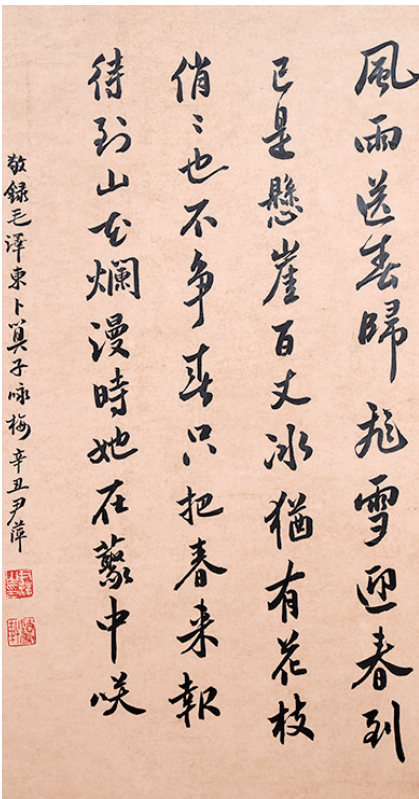 風雨送春歸飛雪迎春到
已是懸崖百丈冰猶有花枝
俏〻也不争春只把春来報
待到山花爛漫時她在藂中咲
敬録毛澤東卜算子咏梅辛丑尹萍